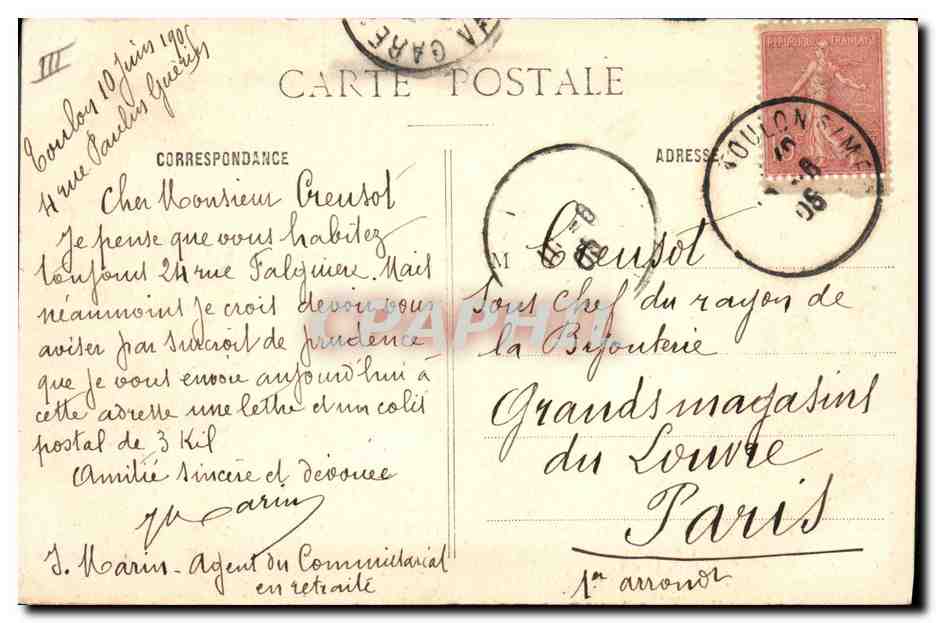 III
Toulon 10 Juin 1905
4 rue Paulin Guérin
GARE
CARTE POSTALE
CORRESPONDANCE
Cher Monsieur Creusot
Je pense que vous habitez
toujours 24 rue Falguiere. Mais
néanmoins je crois devoir vous
aviser par surcroit de prudence
que je vous envoie aujourd'hui à
cette adresse une lettre et un colis
postal de 3 Kil
Amitié sincère et dévouée
JMarin
J. Marin - Agent du Commissariat
en retraite
ADRESSE
REPUBLIQUE FRANÇAISE
TOULON S/MER
M Creusot
Sous Chef du rayon de
la Bijouterie
Grands magasins
du Louvre
Paris
1er arrondt
CPAPHIL